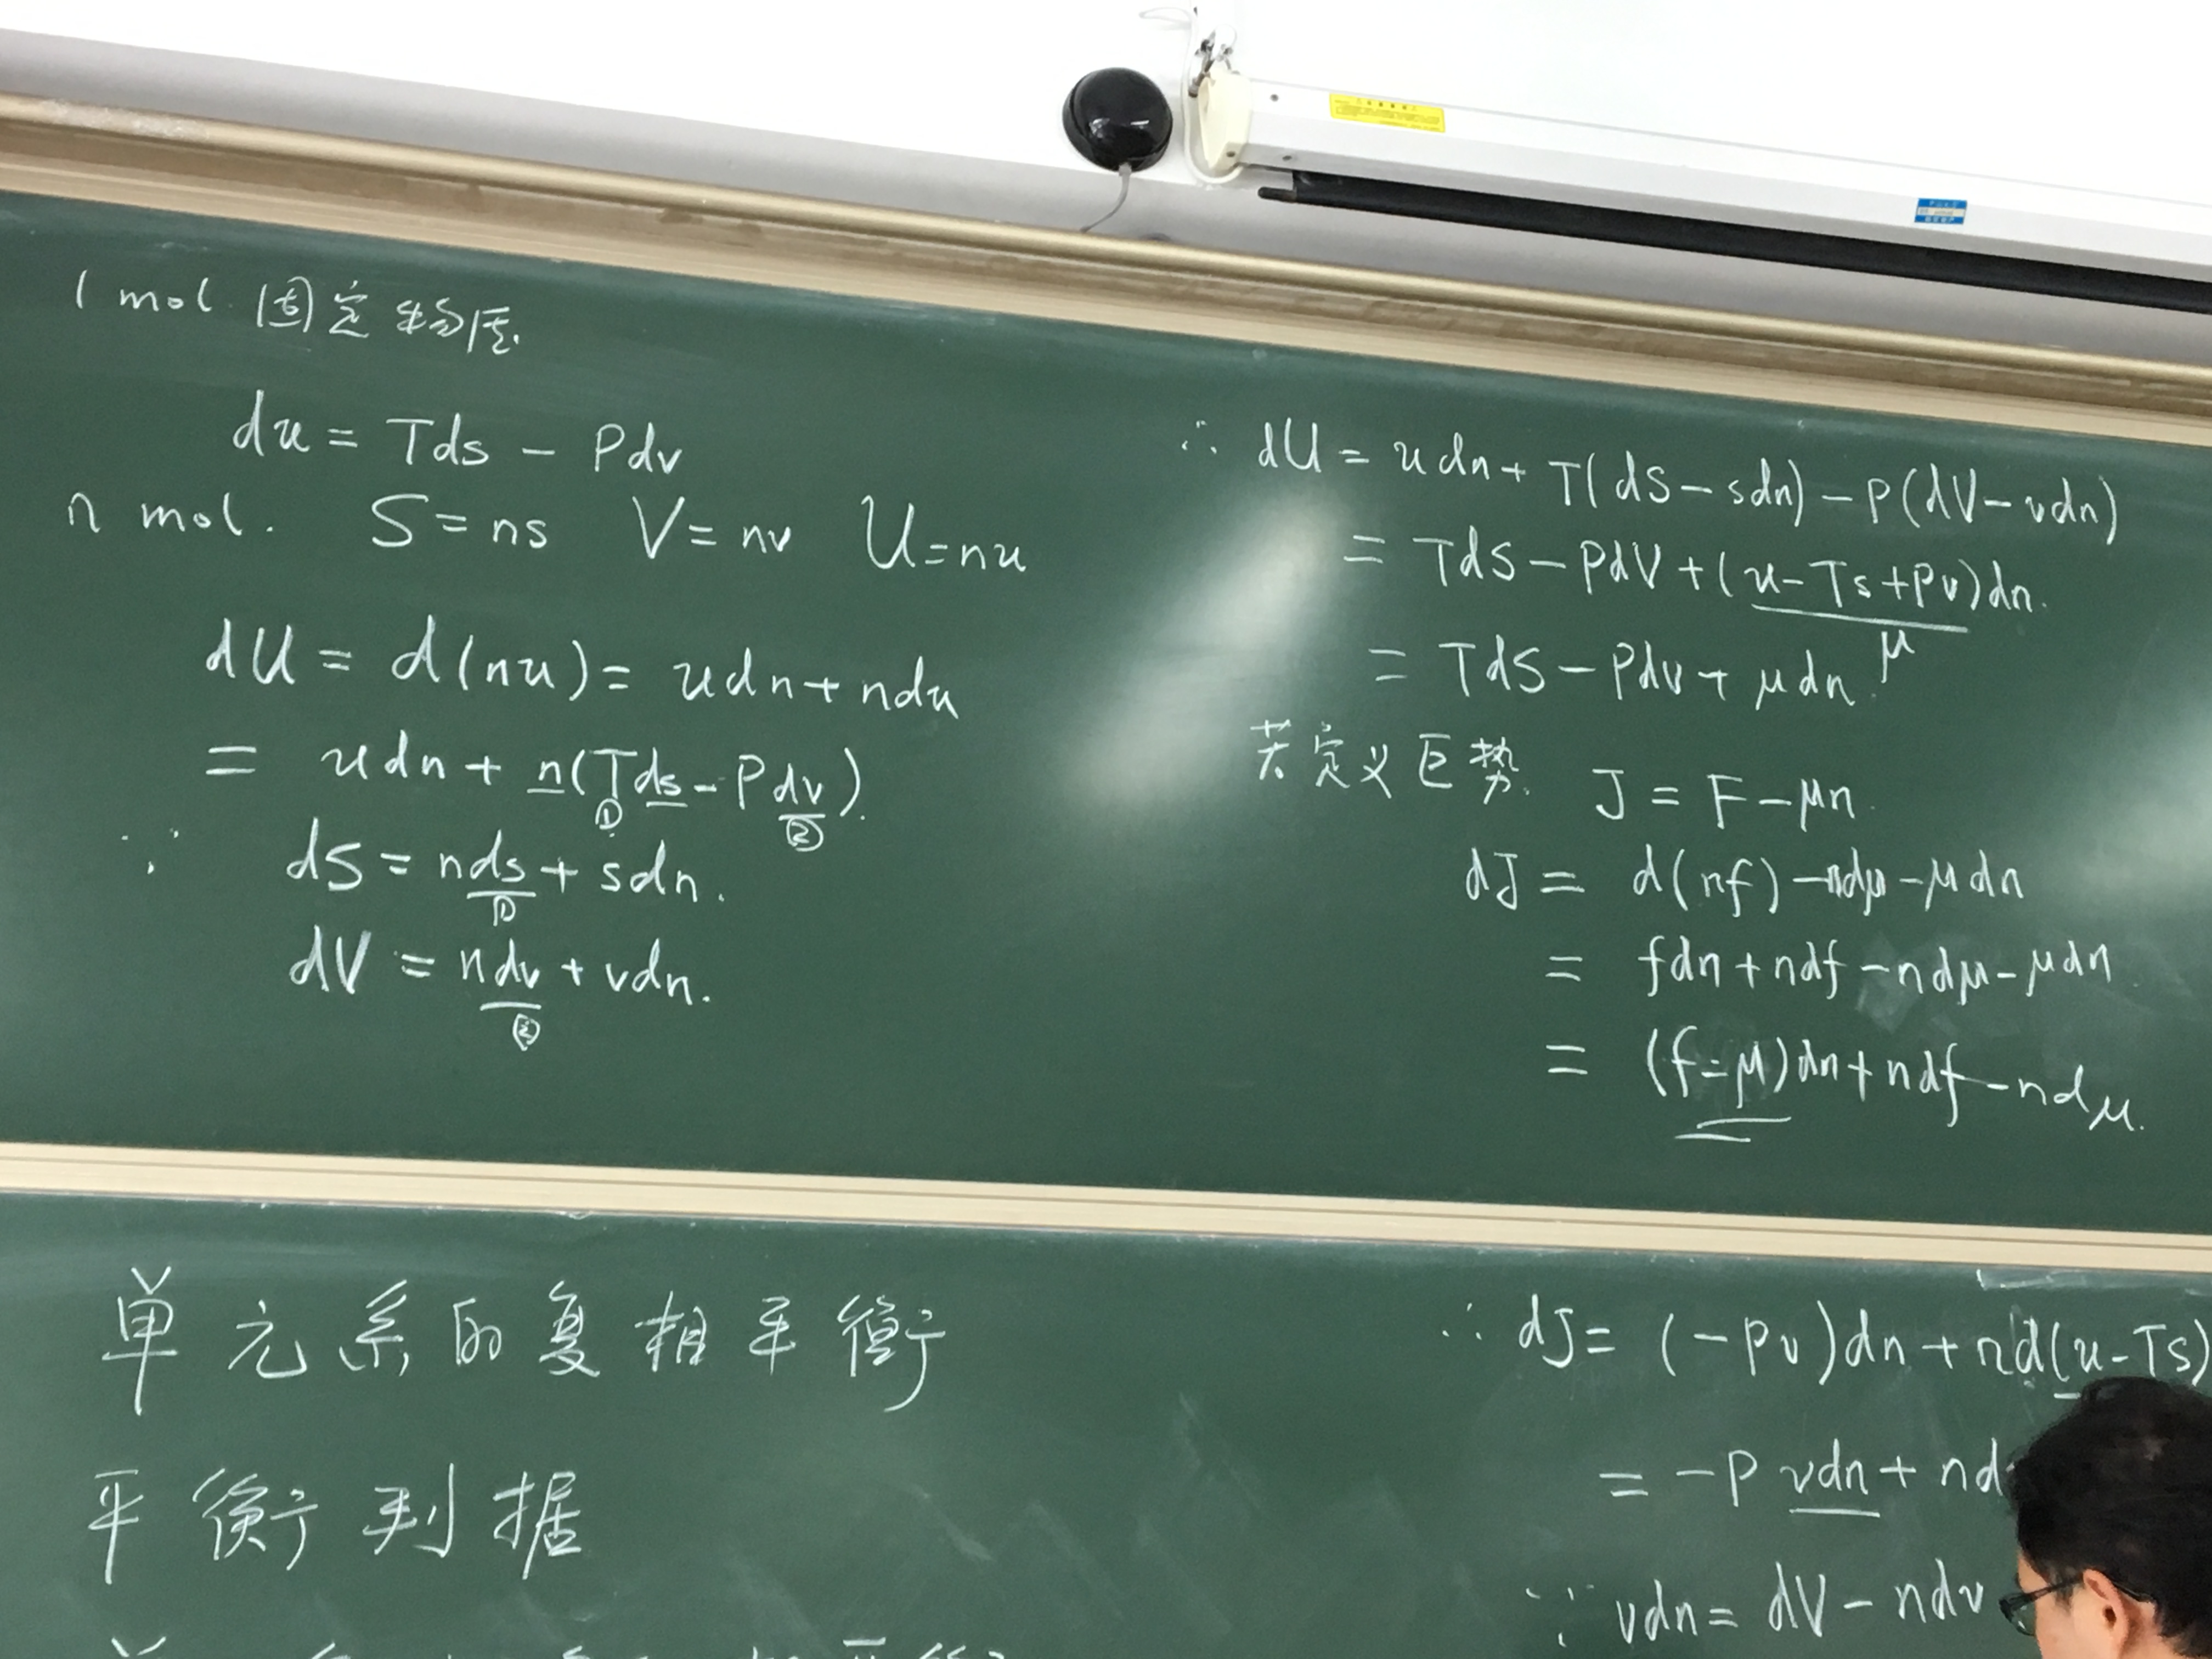 1 mol 固定物质.
du = Tds - Pdv
n mol. S = ns V = nv U = nu
dU = d(nu) = udn + ndu
= udn + n(Tds - Pdv).
① ②
∵ dS = nds + sdn.
①
dV = ndv + vdn.
②
∴ dU = udn + T(dS - sdn) - P(dV - vdn)
= TdS - PdV + (u - Ts + Pv)dn.
μ
= TdS - Pdv + μdn.
若定义巨势. J = F - μn.
dJ = d(nf) - ndμ - μdn
= fdn + ndf - ndμ - μdn
= (f - μ)dn + ndf - ndμ.
单元系的复相平衡
平衡判据
∴ dJ = (-Pv)dn + nd(u - Ts)
= -P vdn + nd
∵ vdn = dV - ndv